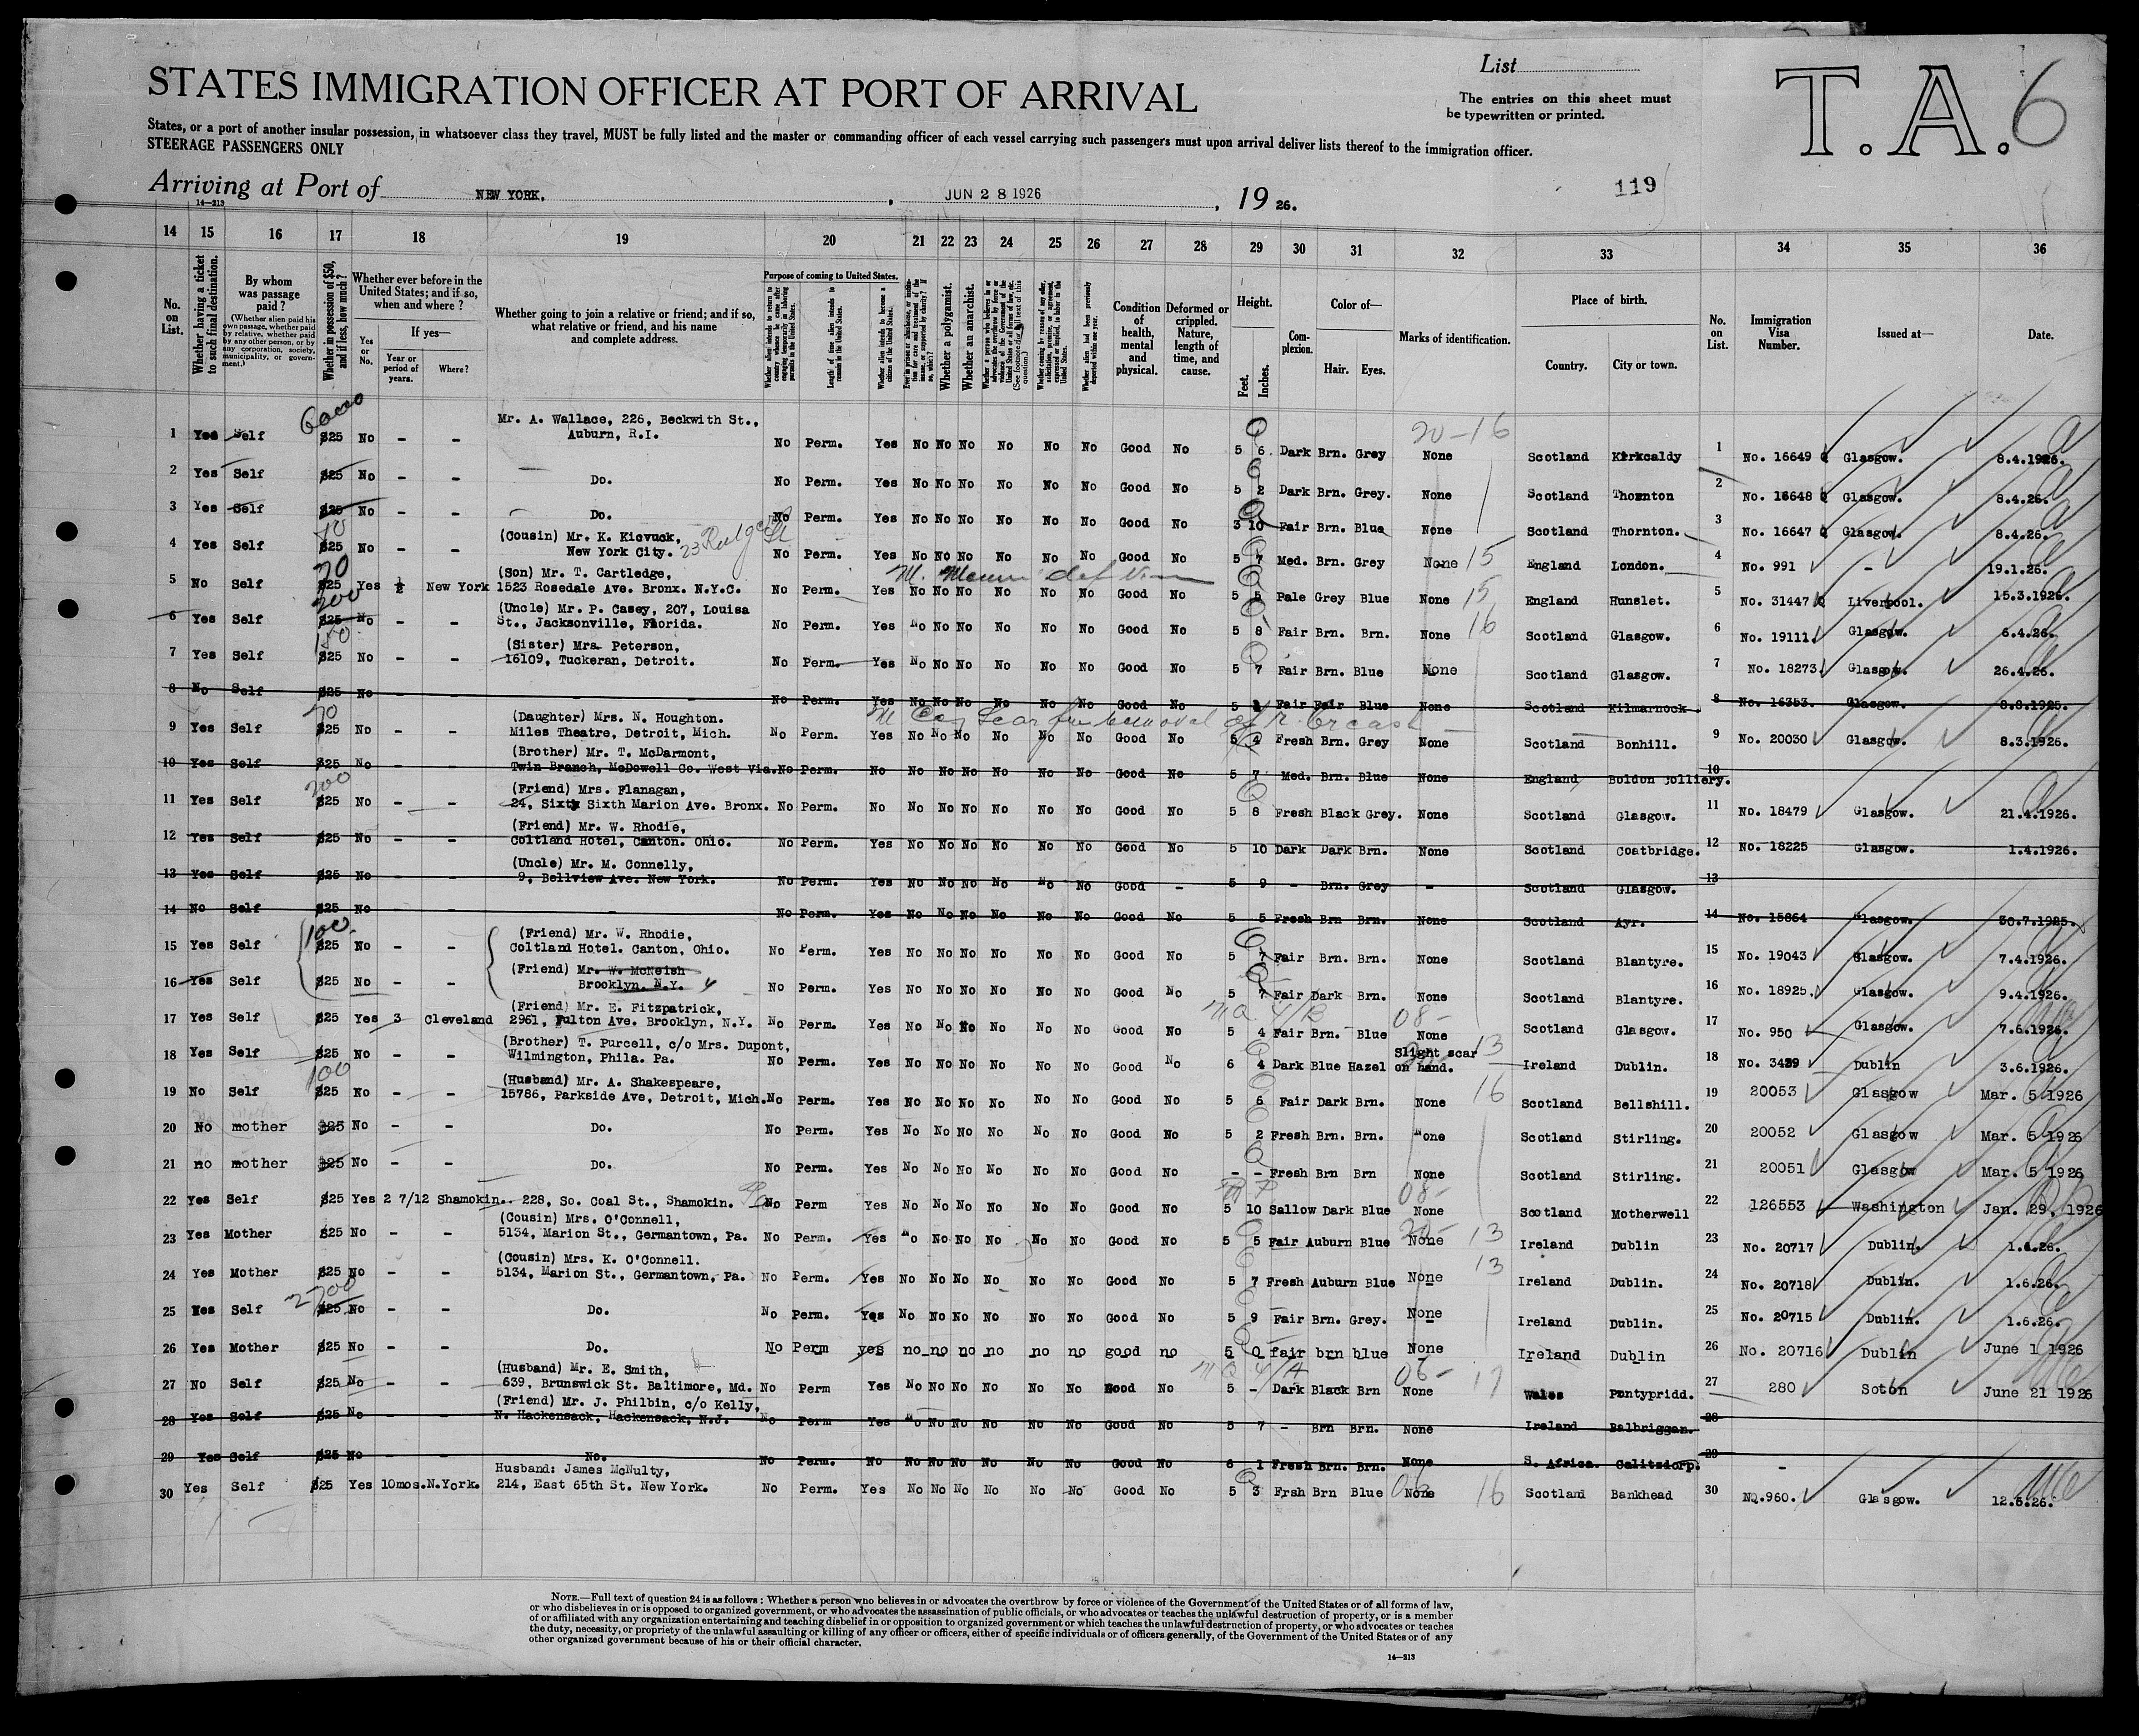 List
STATES IMMIGRATION OFFICER AT PORT OF ARRIVAL
The entries on this sheet must
be typewritten or printed.
T. A. 6
States, or a port of another insular possession, in whatsoever class they travel, MUST be fully listed and the master or commanding officer of each vessel carrying such passengers must upon arrival deliver lists thereof to the immigration officer.
STEERAGE PASSENGERS ONLY
Arriving at Port of NEW YORK, , JUN 28 1926 , 19 26.
119
14—213
14 15 16 17 18 19 20 21 22 23 24 25 26 27 28 29 30 31 32 33 34 35 36
No. on List.
Whether having a ticket to such final destination.
By whom was passage paid?
(Whether alien paid his own passage, whether paid by relative, whether paid by any other person, or by any corporation, society, municipality, or government.)
Whether in possession of $50, and if less, how much?
Whether ever before in the United States; and if so, when and where?
Yes or No.
If yes—
Year or period of years.
Where?
Whether going to join a relative or friend; and if so, what relative or friend, and his name and complete address.
Purpose of coming to United States.
Length of time alien intends to remain in the United States.
Whether alien intends to become a citizen of the United States.
Whether a polygamist.
Whether an anarchist.
Condition of health, mental and physical.
Deformed or crippled. Nature, length of time, and cause.
Height.
Feet. Inches.
Complexion.
Color of—
Hair. Eyes.
Marks of identification.
Place of birth.
Country. City or town.
No. on List.
Immigration Visa Number.
Issued at—
Date.
1 Yes Self $25 No - - Mr. A. Wallace, 226, Beckwith St., Auburn, R.I. No Perm. Yes No No No No No No Good No 5 6 Dark Brn. Grey None 20-16 Scotland Kirkcaldy 1 No. 16649 Glasgow. 8.4.1926.
2 Yes Self $25 No - - Do. No Perm. Yes No No No No No No Good No 5 2 Dark Brn. Grey. None Scotland Thornton 2 No. 16648 Glasgow. 8.4.26.
3 Yes Self $25 No - - Do. No Perm. Yes No No No No No No Good No 3 10 Fair Brn. Blue None Scotland Thornton. 3 No. 16647 Glasgow. 8.4.26.
4 Yes Self $25 No - - (Cousin) Mr. K. Kicvuck, New York City. No Perm. Yes No No No No No No Good No 5 7 Med. Brn. Grey None 15 England London. 4 No. 991 - 19.1.26.
5 No Self $25 Yes New York (Son) Mr. T. Cartledge, 1523 Rosedale Ave. Bronx. N.Y.C. No Perm. Yes No No No No No No Good No 5 5 Pale Grey Blue None 15 England Hunslet. 5 No. 31447 Liverpool. 15.3.1926.
6 Yes Self 200 $25 No - - (Uncle) Mr. P. Casey, 207, Louisa St., Jacksonville, Florida. No Perm. Yes No No No No No No Good No 5 8 Fair Brn. Brn. None 16 Scotland Glasgow. 6 No. 19111. Glasgow. 6.4.26.
7 Yes Self 150 $25 No - - (Sister) Mrs. Peterson, 16109, Tuckeran, Detroit. No Perm. Yes No No No No No No Good No 5 7 Fair Brn. Blue None Scotland Glasgow. 7 No. 18273. Glasgow. 26.4.26.
8 No Self $25 No - - - No Perm. Yes No No No No No No Good No 5 Fair Fair Blue None Scotland Kilmarnock. 8 No. 16353. Glasgow. 8.8.1925.
9 Yes Self 70 $25 No - - (Daughter) Mrs. N. Houghton. Miles Theatre, Detroit, Mich. No Perm. Yes No No No No No No Good No 5 4 Fresh Brn. Grey None Scotland Bonhill. 9 No. 20030 Glasgow. 8.3.1926.
10 Yes Self $25 No - - (Brother) Mr. T. McDarmont, Twin Branch, McDowell Co. West Via. No Perm. No No No No No No No Good No 5 7 Med. Brn. Blue None England Boldon Colliery. 10
11 Yes Self 200 $25 No - - (Friend) Mrs. Flanagan, 24, Sixty Sixth Marion Ave. Bronx. No Perm. No No No No No No No Good No 5 8 Fresh Black Grey. None Scotland Glasgow. 11 No. 18479 Glasgow. 21.4.1926.
12 Yes Self $25 No - - (Friend) Mr. W. Rhodie, Coltland Hotel, Canton. Ohio. No Perm. Yes No No No No No No Good No 5 10 Dark Dark Brn. None Scotland Coatbridge. 12 No. 18225 Glasgow. 1.4.1926.
13 Yes Self $25 No - - (Uncle) Mr. M. Connelly, 9, Bellview Ave. New York. No Perm. Yes No No No No No No Good - 5 9 - Brn. Grey - Scotland Glasgow. 13
14 No Self $25 No - - - No Perm. Yes No No No No No No Good No 5 5 Fresh Brn Brn. None Scotland Ayr. 14 No. 15864 Glasgow. 30.7.1925.
15 Yes Self 100 $25 No - - (Friend) Mr. W. Rhodie, Coltland Hotel. Canton, Ohio. No Perm. Yes No No No No No No Good No 5 7 Fair Brn. Brn. None Scotland Blantyre. 15 No. 19043 Glasgow. 7.4.1926.
16 Yes Self $25 No - - (Friend) Mr. W. McNeish Brooklyn. N.Y. No Perm. Yes No No No No No No Good No 5 7 Fair Dark Brn. None Scotland Blantyre. 16 No. 18925. Glasgow. 9.4.1926.
17 Yes Self $25 Yes 3 Cleveland (Friend) Mr. E. Fitzpatrick, 2961, Fulton Ave. Brooklyn, N.Y. No Perm. Yes No No No No No No Good No 5 4 Fair Brn. Blue None 08- Scotland Glasgow. 17 No. 950 Glasgow. 7.6.1926.
18 Yes Self $25 No - - (Brother) T. Purcell, c/o Mrs. Dupont, Wilmington, Phila. Pa. No Perm. Yes No No No No No No Good No 6 4 Dark Blue Hazel Slight scar on hand. 13 Ireland Dublin. 18 No. 3489 Dublin 3.6.1926.
19 No Self 100 $25 No - - (Husband) Mr. A. Shakespeare, 15786, Parkside Ave, Detroit, Mich. No Perm. Yes No No No No No No Good No 5 6 Fair Dark Brn. None 16 Scotland Bellshill. 19 20053 Glasgow Mar. 5 1926
20 No mother $25 No - - Do. No Perm. Yes No No No No No No Good No 5 2 Fresh Brn. Brn. None Scotland Stirling. 20 20052 Glasgow Mar. 5 1926
21 no mother $25 No - - Do. No Perm. Yes No No No No No No Good No - - Fresh Brn Brn None Scotland Stirling. 21 20051 Glasgow Mar. 5 1926
22 Yes Self $25 Yes 2 7/12 Shamokin. 228, So. Coal St., Shamokin. Pa No Perm Yes No No No No No No Good No 5 10 Sallow Dark Blue None 08- Scotland Motherwell 22 126553 Washington Jan. 29, 1926
23 Yes Mother $25 No - - (Cousin) Mrs. O'Connell, 5134, Marion St., Germantown, Pa. No Perm. Yes No No No No No No Good No 5 5 Fair Auburn Blue None 20- 13 Ireland Dublin 23 No. 20717 Dublin. 1.6.26.
24 Yes Mother $25 No - - (Cousin) Mrs. K. O'Connell. 5134, Marion St., Germantown, Pa. No Perm. Yes No No No No No No Good No 5 7 Fresh Auburn Blue None 13 Ireland Dublin. 24 No. 20718 Dublin. 1.6.26.
25 Yes Self $25 No - - Do. No Perm. Yes No No No No No No Good No 5 9 Fair Brn. Grey. None Ireland Dublin. 25 No. 20715 Dublin. 1.6.26.
26 Yes Mother $25 No - - Do. No Perm yes no no no no no no good no 5 0 fair brn blue None Ireland Dublin 26 No. 20716 Dublin June 1 1926
27 No Self $25 No - - (Husband) Mr. E. Smith, 639, Brunswick St. Baltimore, Md. No Perm Yes No No No No No No Good No 5 - Dark Black Brn None 06- 17 Wales Pontypridd. 27 280 Soton June 21 1926
28 Yes Self $25 No - - (Friend) Mr. J. Philbin, c/o Kelly, N. Hackensack, Hackensack, N.J. No Perm Yes No No No No No No Good No 5 7 - Brn Brn. None Ireland Balbriggan. 28
29 Yes Self $25 No - - No. No Perm. No No No No No No No Good No 6 1 Fresh Brn. Brn. None S. Africa. Calitzdorp. 29 -
30 Yes Self $25 Yes 10mos. N.York. Husband: James McNulty, 214, East 65th St. New York. No Perm. Yes No No No No No No Good No 5 3 Frsh Brn Blue None 16 Scotland Bankhead 30 No.960. Glasgow. 12.6.26.
NOTE.—Full text of question 24 is as follows: Whether a person who believes in or advocates the overthrow by force or violence of the Government of the United States or of all forms of law,
or who disbelieves in or is opposed to organized government, or who advocates the assassination of public officials, or who advocates or teaches the unlawful destruction of property, or is a member
of or affiliated with any organization entertaining and teaching disbelief in or opposition to organized government or which teaches the unlawful destruction of property, or who advocates or teaches
the duty, necessity, or propriety of the unlawful assaulting or killing of any officer or officers, either of specific individuals or of officers generally, of the Government of the United States or of any
other organized government because of his or their official character.
14—213